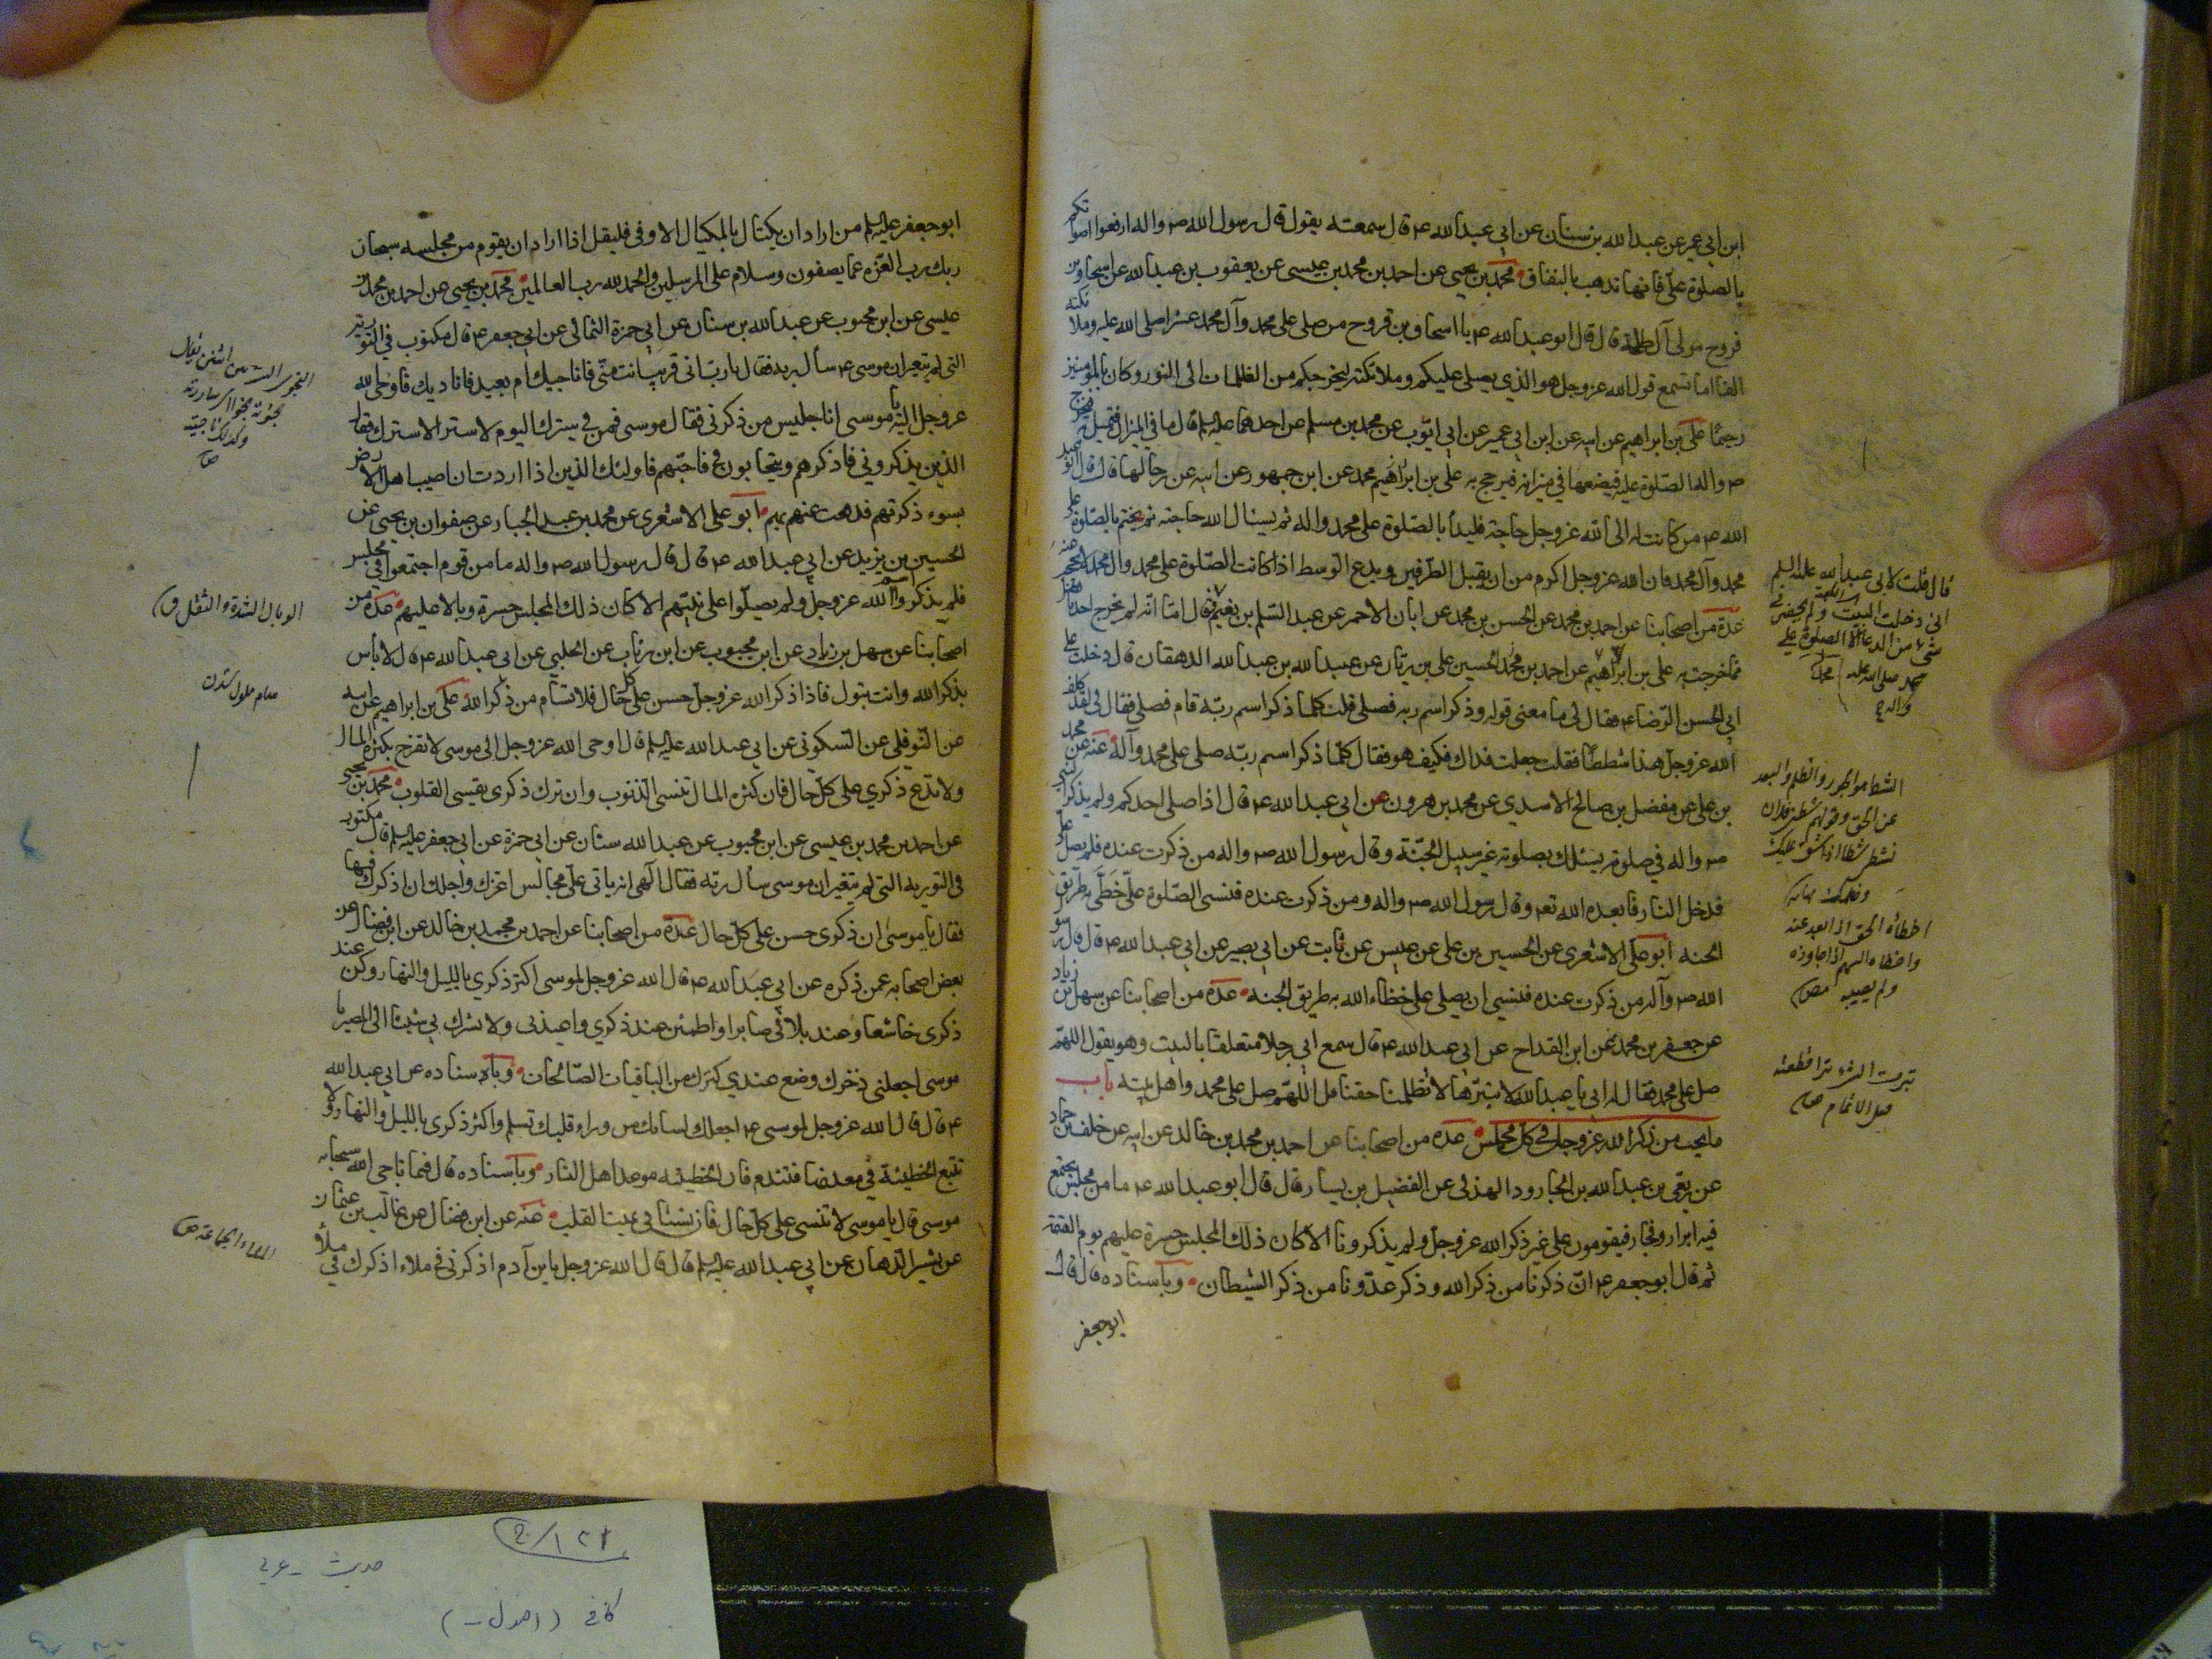 ابن ابي عمير عن عبد الله بن سنان عن ابي عبد الله ع قال سمعته يقول قال رسول الله ص واله ارفعوا اصواتكم
بالصلوة علي فانها تذهب بالنفاق محمد بن يحيى عن احمد بن محمد بن عيسى عن يعقوب بن عبد الله عن اسحاق بن
فروح مولى آل طلحة قال قال ابو عبد الله ع يا اسحاق بن فروح من صلى على محمد وآل محمد عشرا صلى الله عليه وملائكته
الفا اما تسمع قول الله عز وجل هو الذي يصلي عليكم وملائكته ليخرجكم من الظلمات الى النور وكان بالمؤمنين
رحيما علي بن ابراهيم عن ابيه عن ابن ابي عمير عن ابي ايوب عن محمد بن مسلم عن احدهما عليه السلم قال ما في الميزان
ص واله الصلوة عليه فيضعها في ميزانه فيرجح به علي بن ابراهيم محمد عن ابن جمهور عن ابيه عن رجالها قال قال ابو عبد
الله ع من كانت له الى الله عز وجل حاجة فليبدأ بالصلوة على محمد واله ثم يسئال الله حاجته ثم يختم بالصلوة على
محمد وآل محمد فان الله عز وجل اكرم من ان يقبل الطرفين ويدع الوسط اذا كانت الصلوة على محمد وال محمد لا تحجب عنه
عدة من اصحابنا عن احمد بن محمد عن الحسن بن محمد عن ابان الاحمر عن عبد السلم بن نعيم قال اما انه لم يخرج احد بافضل
مما خرجت به علي بن ابراهيم عن احمد بن محمد الحسين علي بن ريان عن عبيد الله بن عبد الله الدهقان قال دخلت على
ابي الحسن الرضا ع فقال لي ما معنى قوله وذكر اسم ربه فصلى قلت كلما ذكر اسم ربه قام فصلى فقال لي لقد كلف
الله عز وجل هذا شططا فقلت جعلت فداك فكيف هو فقال كلما ذكر اسم ربه صلى على محمد وآله عنه عن محمد
بن علي عن مفضل بن صالح الاسدي عن محمد بن هرون عن ابي عبد الله ع قال اذا صلى احدكم ولم يذكر النبي
ص واله في صلوته يسئلك بصلوته غير سبيل الجنة وقال رسول الله ص واله من ذكرت عنده فلم يصل علي
فدخل النار فابعده الله تع وقال رسول الله ص واله ومن ذكرت عنده فنسي الصلوة علي خطي به طريق
الجنه ابو علي الاشعري عن الحسين بن علي عن عبيس عن ثابت عن ابي بصير عن ابي عبد الله ع قال قال رسو
الله ص وآله من ذكرت عنده فنسي ان يصلي علي خطاء الله به طريق الجنه عدة من اصحابنا عن سهل بن زياد
عن جعفر بن محمد عن ابن القداح عن ابي عبد الله ع قال سمع ابي رجلا متعلقا بالبيت وهو يقول اللهم
صل على محمد فقال له ابي يا عبد الله لا تبترها لا تظلمنا حقنا قل اللهم صل على محمد واهل بيته باب
ما يجب من ذكر الله عز وجل في كل مجلس عده من اصحابنا عن احمد بن محمد بن خالد عن ابيه عن خلف بن حماد
عن ربعي بن عبد الله بن الجارود الهذلي عن الفضيل بن يسار قال قال ابو عبد الله ع ما من مجلس يجتمع
فيه ابرار وفجار فيقومون على غير ذكر الله عز وجل ولم يذكرونا الا كان ذلك المجلس حسرة عليهم يوم القيمة
ثم قال ابو جعفر ع ان ذكرنا من ذكر الله وذكر عدونا من ذكر الشيطان وباسناده قال قال
ابو جعفر
قال قلت لابي عبد الله عليه السلم
اني دخلت البيت ولم يحضرني
شيء من الدعاء الا الصلوة على
محمد صلى الله عليه
واله
الشطط مو الجور والظلم والبعد
عن الحق
اخطاه الحق اذا ابعد عنه
واخطاه السهم اذا جاوزه
ولم يصبه
بترت الشيء بترا قطعته
قبل الاتمام ص
ابو جعفر عليه السلم من اراد ان يكتال بالمكيال الاوفى فليقل اذا اراد ان يقوم من مجلسه سبحان
ربك رب العزة عما يصفون وسلام على المرسلين والحمد لله رب العالمين محمد بن يحيى عن احمد بن محمد بن
عيسى عن ابن محبوب عن عبد الله بن سنان عن ابي حمزة الثمالي عن ابي جعفر ع قال مكتوب في التورية
التي لم تتغير ان موسى ع سأل ربه فقال يا رب اقريب انت مني فاناجيك ام بعيد فاناديك فاوحى الله
عز وجل اليه يا موسى انا جليس من ذكرني فقال موسى فمن في سترك اليوم لا ستر الا سترك فقال
الذين يذكروني فاذكرهم ويتحابون في فاحبهم فاولئك الذين اذا اردت ان اصيب اهل الارض
بسوء ذكرتهم فدفعت عنهم بهم ابو علي الاشعري عن محمد بن عبد الجبار عن صفوان بن يحيى عن
الحسين بن يزيد عن ابي عبد الله ع قال قال رسول الله ص واله ما من قوم اجتمعوا في مجلس
فلم يذكروا اسم الله عز وجل ولم يصلوا على نبيهم الا كان ذلك المجلس حسرة وبالا عليهم عدة من
اصحابنا عن سهل بن زياد عن ابن محبوب عن ابن رئاب عن الحلبي عن ابي عبد الله ع قال لا باس
بذكر الله وانت تبول فاذا ذكر الله عز وجل حسن على كل حال فلا تسأم من ذكر الله علي بن ابراهيم عن ابيه
عن النوفلي عن السكوني عن ابي عبد الله عليه السلم قال اوحى الله عز وجل الى موسى لا تفرح بكثرة المال
ولا تدع ذكري على كل حال فان كثرة المال تنسي الذنوب وان ترك ذكري يقسي القلوب محمد بن يحيى
عن احمد بن محمد بن عيسى عن ابن محبوب عن عبد الله سنان عن ابي حمزة عن ابي جعفر عليه السلم قال مكتوب
في التوريه التي لم تتغير ان موسى سأل ربه فقال الهي انه ياتي علي مجالس اعزك واجلك ان اذكرك فيها
فقال يا موسى ان ذكري حسن على كل حال عدة من اصحابنا عن احمد بن محمد بن خالد عن ابن فضال عن
بعض اصحابه عمن ذكره عن ابي عبد الله ع قال قال الله عز وجل لموسى اكثر ذكري بالليل والنهار وكن عند
ذكري خاشعا وعند بلائي صابرا واطمئن عند ذكري واعبدني ولا تشرك بي شيئا الي المصير يا
موسى اجعلني ذخرك وضع عندي كنزك من الباقيات الصالحات وباسناده عن ابي عبد الله
ع قال قال الله عز وجل لموسى ع اجعل لسانك من وراء قلبك تسلم واكثر ذكري بالليل والنهار ولا
تتبع الخطيئة في معدنها فتندم فان الخطيئه موعد اهل النار وباسناده قال فيما ناجى الله سبحانه
موسى قال يا موسى لا تنسني على كل حال فان نسياني يميت القلب عنه عن ابن فضال عن غالب بن عثمان
عن بشير الدهان عن ابي عبد الله عليه السلم قال قال الله عز وجل يا ابن آدم اذكرني في ملاء اذكرك في ملأ
وكذلك ناجيته
الوبال الشدة والثقل ق
الملاء الجماعة ص
١٢١/٢
حديث - عربي
كافى (اصول -)